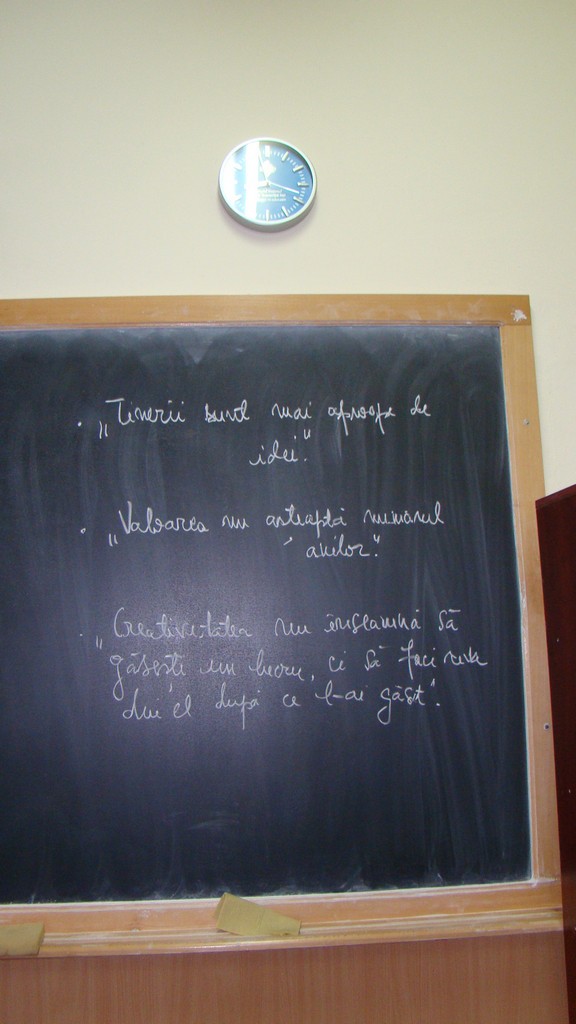 • „Tinerii sunt mai aproape de
idei."
• „Valoarea nu așteaptă numărul
anilor."
• „Creativitatea nu înseamnă să
găsești un lucru, ci să faci ceva
din el după ce l-ai găsit".